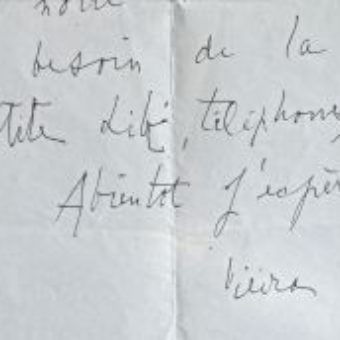 notre
besoin de la
tite Libé, téléphone
Abientot j'espèr
Vieira